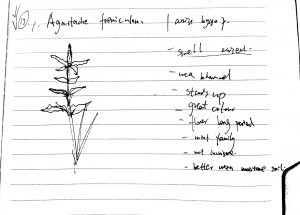 Agastache foeniculum. / anise hyssop.
- smell
- well behaved
- stands up
- great colour
- flower long period
- mint family
- not invasive.
- better with moisture soil.